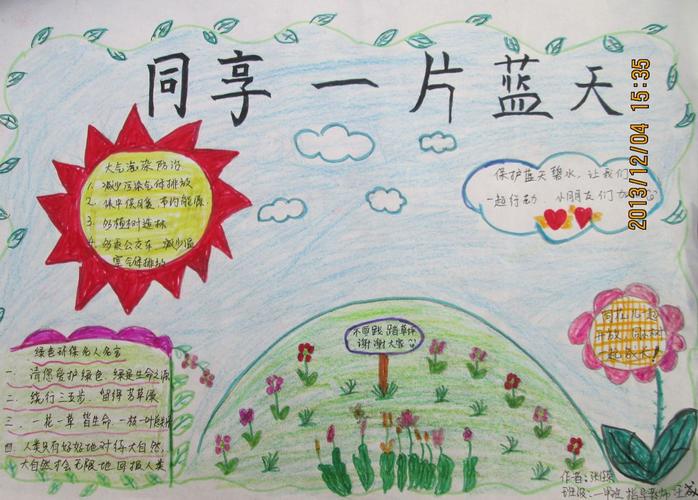 同享一片蓝天
2013/12/04 15:35
大气污染防治
1. 减少污染气体排放
2. 体中保暖 节约能源
3. 多植树造林
4. 多乘公交车 减少温
室气体排放
保护蓝天碧水，让我们
一起行动 小朋友们加
不要践踏草坪
谢谢大家
同在儿起
绿色环保名人名言
一、请您爱护绿色、绿是生命之源
二、绕行三五步，留得芳草
三、一花一草皆生命，一枝一叶总关情
四、人类只有好好地对待大自然，
大自然才会无限地回报人类
作者：张
班级： 指导教师：